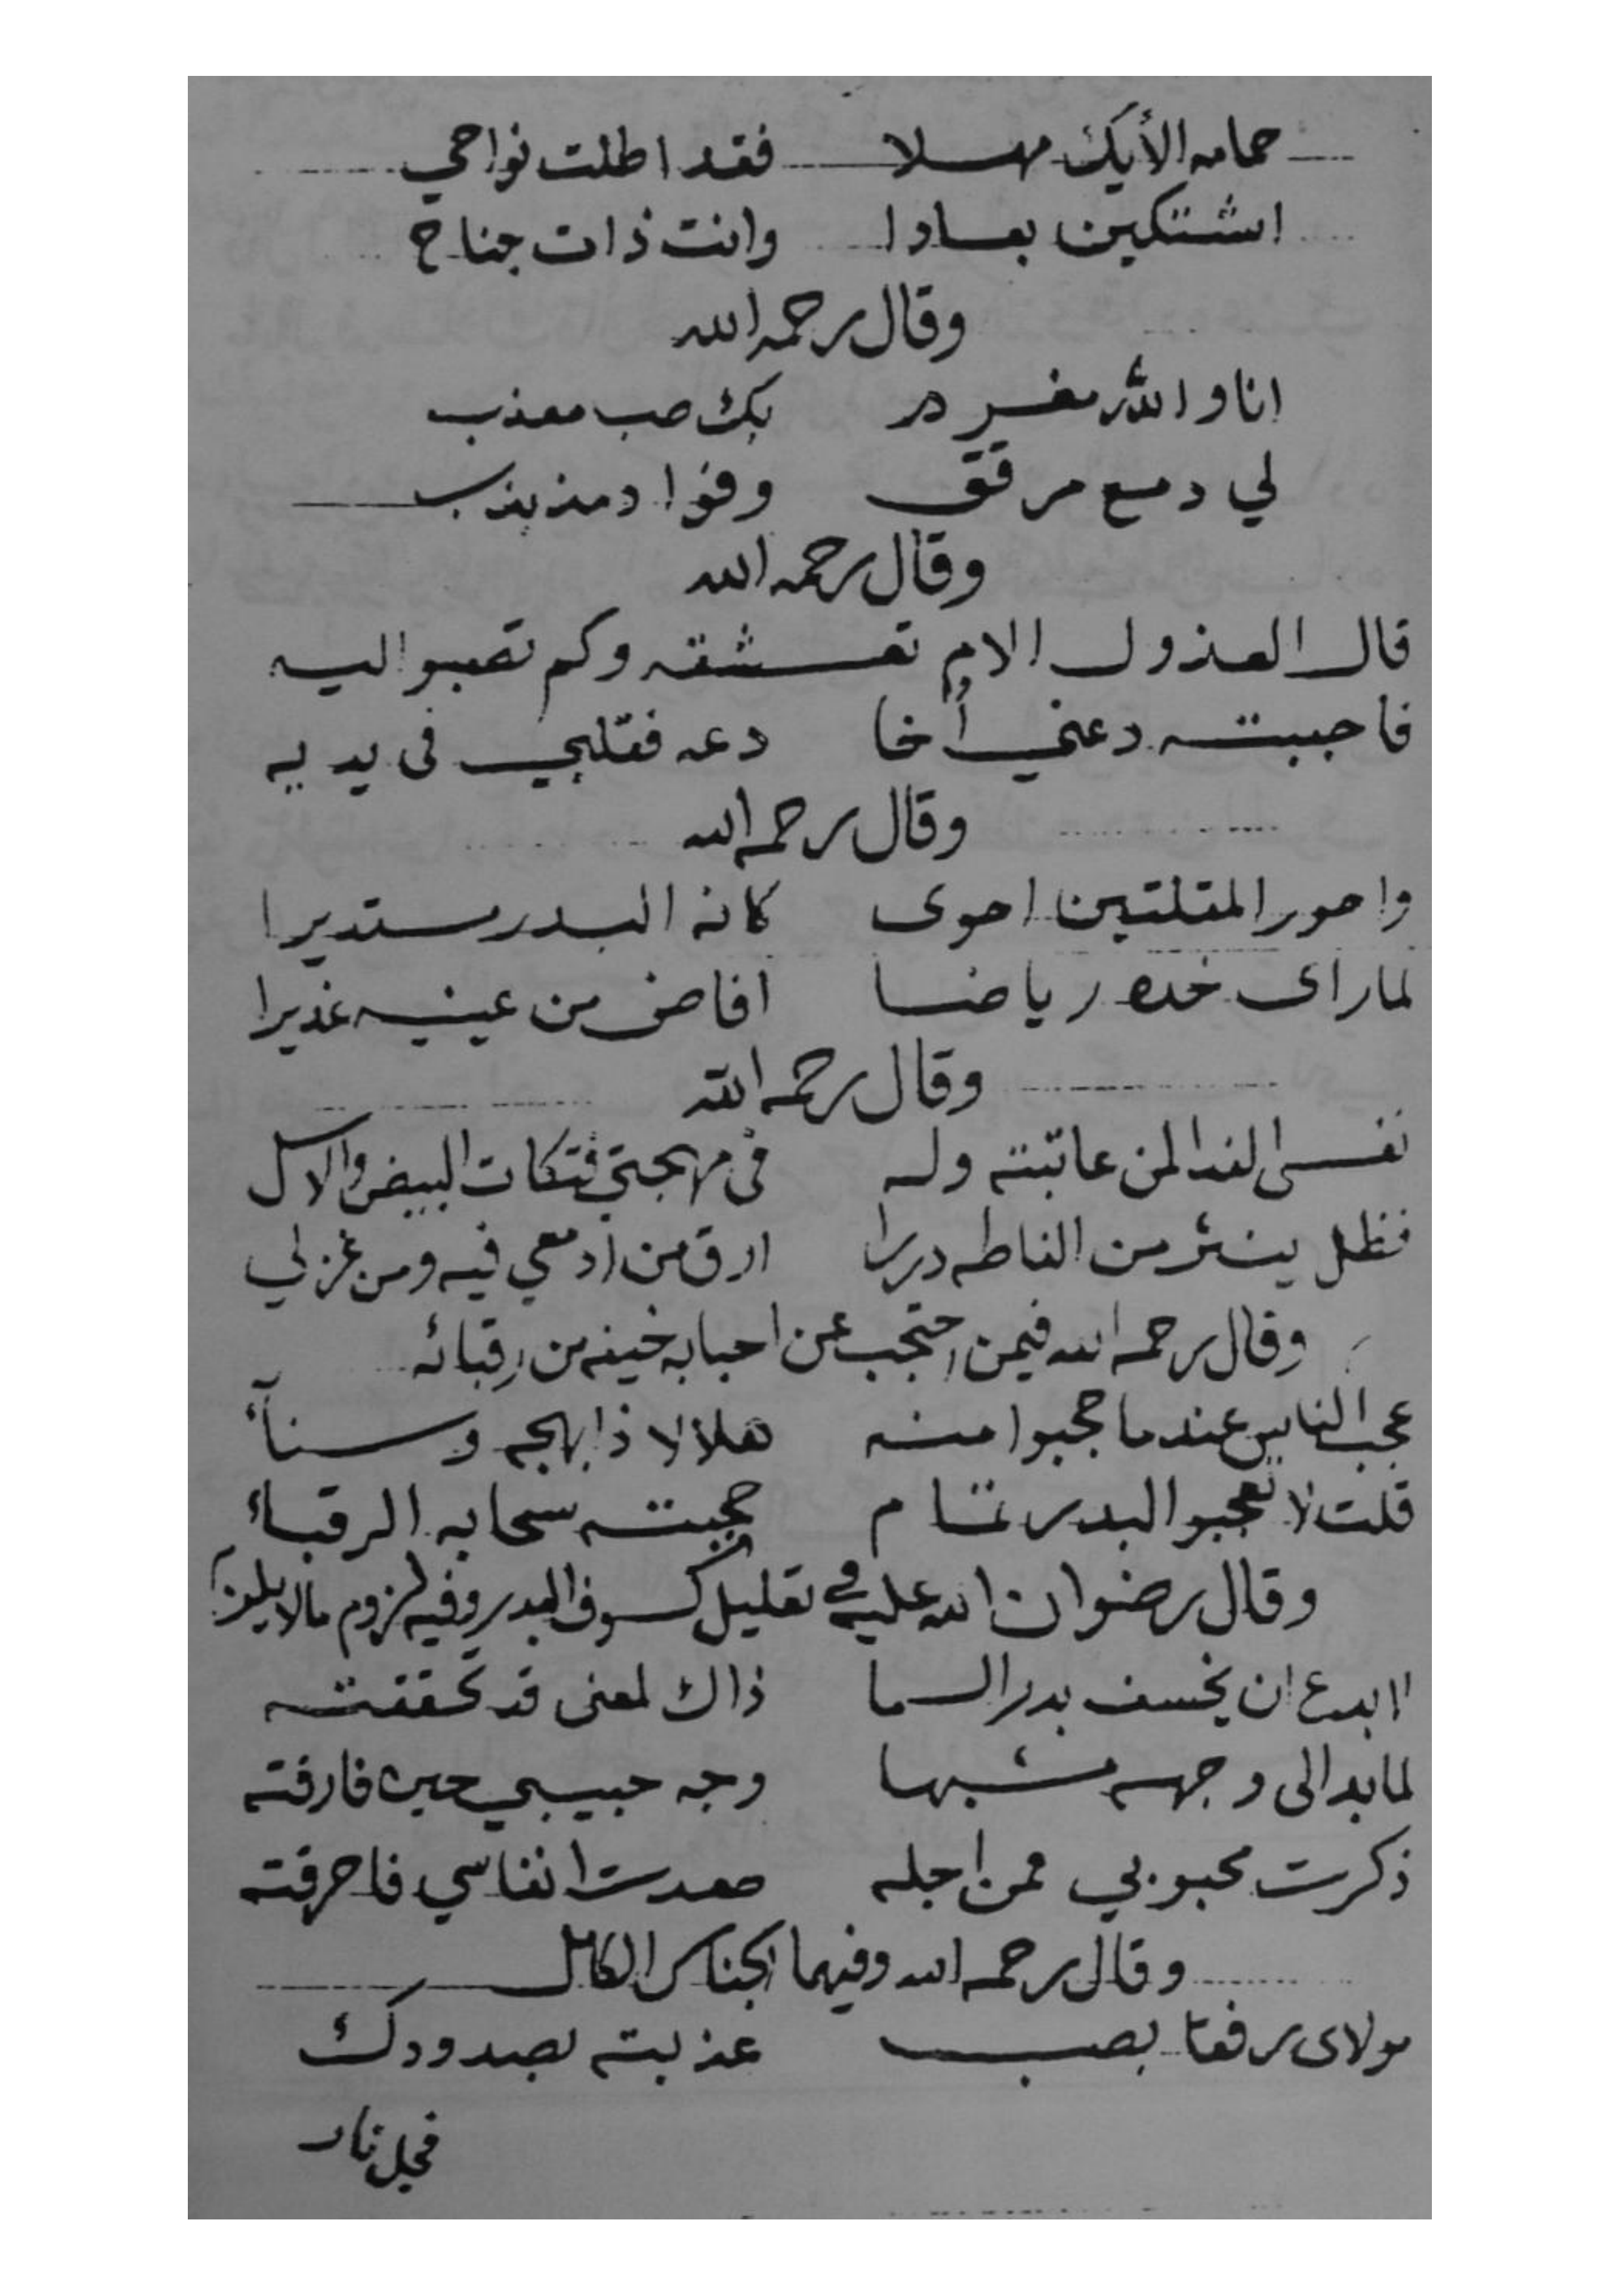 حمامه الأيك مهلا فقد اطلت نواحي
اشتكين بعادا وانت ذات جناح
وقال رحمه الله
انا والله مغرم بك صب معذب
لي دمع مرقق وفؤاد مذبذب
وقال رحمه الله
قال العذول الام تعشقه وكم تصبو اليه
فاجبته دعني أخا دعه فقلبي فى يديه
وقال رحمه الله
واحور المقلتين احوى كانه البدر مستديرا
لما راى خده رياضا افاض من عينيه غديرا
وقال رحمه الله
نفسى الفدا لمن عاتبته وله فى مهجتي فتكات البيض والاسل
فظل ينثر من الفاظه دررا ارق من ادمعي فيه ومن غزلي
وقال رحمه الله فيمن احتجب عن احبابه خيفه من رقبائه
عجب الناس عندما حجبوا منه هلالا ذا بهجه وسنآء
قلت لا تعجبو البدر تمام حجبته سحابه الرقباء
وقال رضوان الله عليه في تعليل كسوف البدر وفيه لزوم مالا يلزم
لا بدع ان يخسف بدر السما ذاك لمعنى قد تحققته
لما بدا لى وجهه مشبها وجه حبيبي حين فارقته
ذكرت محبوبي فمن اجله صعدت انفاسي فاحرقته
وقال رحمه الله وفيهما الجناس الكامل
مولاى رفقا بصب عذبته بصدودك
فحل نار